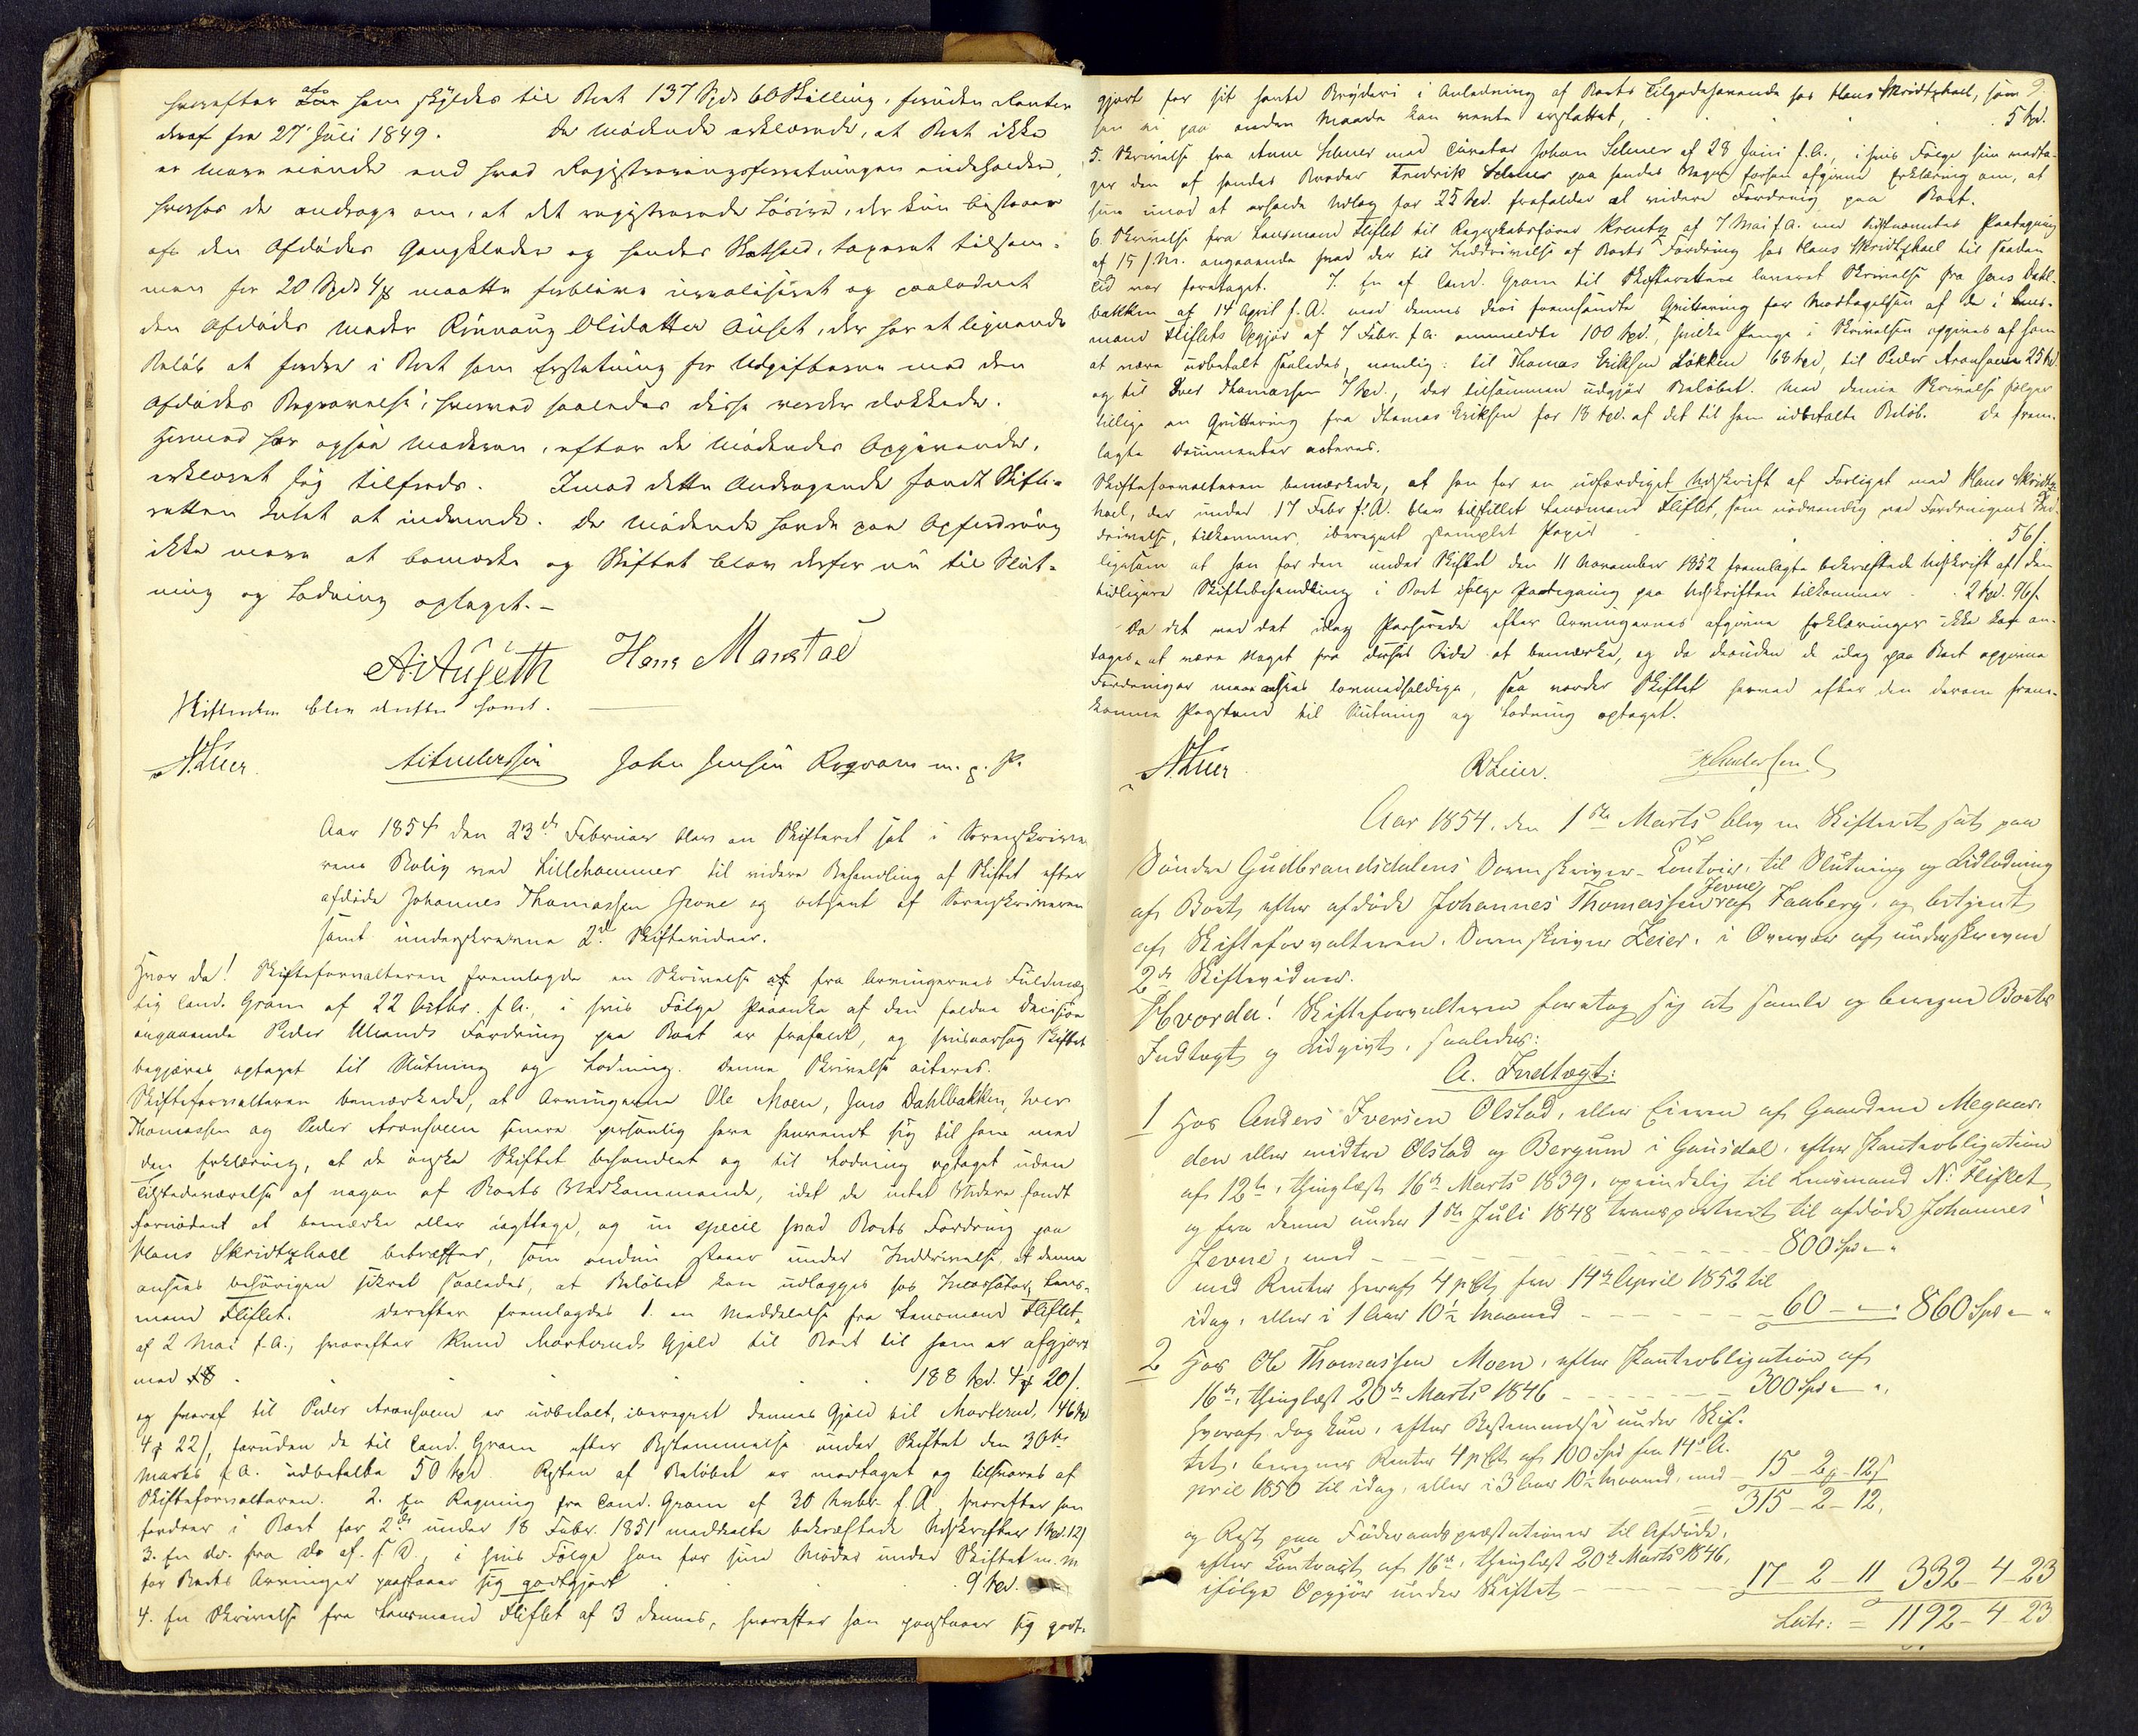 hvorefter han skyldes til Boet 137 Spd 60 Skilling, foruden Renter
deraf fra 27 Juli 1849. De mødende erklærede, at Boet ikke
er mere eiende end hvad Registreringsforretningen indeholder,
hvorfor de androge om, at det registrerede Løsøre, der kun bestaaer
af den Afdødes Gangklæder og hendes, taxeret tilsam-
men for 20 Spd 4 maatte forblive urealiseret og
den Afdødes Moder Rønnaug Olsdatter, der har et lignende
Beløb at fordre i Boet som Erstatning for Udgifterne med den
Afdødes Begravelse, hvorved saaledes disse vorder dækkede.
Hermed har ogsaa Moderen, efter de Mødendes Opgivende,
erklæret sig tilfreds. Imod dette Andragende fandt Skifte-
retten Intet at indvende. De Mødende havde paa Opfordring
ikke mere at bemærke og Skiftet blev derfor nu til Slut-
ning og Lodning optaget.-
Hans Manstad
Skifteretten blev derefter hævet.
John Jensen Rogram m. p. P.
Aar 1854 den 23de Februar blev en Skifteret sat i Sorenskrive-
rens Bolig ved Lillehammer til videre Behandling af Skiftet efter
afdøde Johannes Thomassen Jevne og betjent af Sorenskriveren
samt underskrevne 2de Skiftevidner.
Hvor da! Skifteforvalteren fremlagde en Skrivelse fra Arvingernes Fuldmæg-
tig Cand. Gram af 22 Octbr. f.A., i hvis Følge Paaanke af den faldne Decision
angaaende Peder Ullands Fordring paa Boet er frafaldt, og hvisaarsag Skiftet
begjæres optaget til Slutning og Lodning. Denne Skrivelse acteres.
Skifteforvalteren bemærkede, at Arvingerne Ole Moen, Jens Dahlbakken, Iver
Thomassen og Peder Aronsveen senere personlig have henvendt sig til ham med
den Erklæring, at de ønske Skiftet behandlet og til Lodning optaget uden
Tilstedeværelse af nogen af Boets Vedkommende, idet de intet Videre fandt
fornødent at bemærke eller iagttage, og in specie hvad Boets Fordring paa
Hans Skridtshoel betræffer, som endnu staaer under Inddrivelse, at denne
ansees behørigen sikret saaledes, at Beløbet kan udlægges hos Incassator, Lens-
mand Fliflet. Derefter fremlagdes 1. en Meddelelse fra Lensmand Fliflet
af 2 Mai f.A., hvorefter Knud Morteruds Gjæld til Boet til ham er afgjort
med 188 Spd. 4 20 s.
og hvoraf til Peder Aronsveen er udbetalt, iberegnet dennes Gjæld til Morterud, 146 Spd
4 22 s, foruden de til Cand. Gram efter Bestemmelse under Skiftet den 30te
Marts f.A. udbetalte 50 Spd. Resten af Beløbet er modtaget og tilsvares af
Skifteforvalteren. 2. En Regning fra Cand. Gram af 30 f.A., hvorefter han
fordrer i Boet for 2de under 18 Febr. 1851 meddeelte bekræftede Udskrifter 1 Spd. 12 s
3. En do. fra do af. f D., i hvis Følge han for sine Møder under Skiftet m.m
for Boets Arvinger paastaaer sig godtgjort 9 Spd.
4. En Skrivelse fra Lensmand Fliflet af 3 dennes, hvorefter han paastaaer sig godt-
9.
gjort for sit havte Bryderi i Anledning af Boets Tilgodehavende hos Hans Skridtshoel, som
han ei paa anden Maade kan vente erstattet, 5 Spd.
5. Skrivelse fra Anne Selmer med Curator Johan Selmer af 28 Juni f.A., i hvis Følge hun vedta-
ger den af hendes Broder Fredrik Selmer paa hendes Vegne forhen afgivne Erklæring om, at
hun imod at erholde Udlæg for 25 Spd. frafalder al videre Fordring paa Boet.
6. Skrivelse fra Lensmand Fliflet til Regnskabsfører Krentz af 7 Mai f.A. med sidstnævntes Paategning
af 15 s.M. angaaende hvad der til Inddrivelse af Boets Fordring hos Hans Skridtshoel til saaden
Tid var foretaget. 7. En af Cand. Gram til Skifteretten leveret Skrivelse fra Jens Dahl-
bakken af 14 April f.A. med dennes deri fremsendte Qvittering for Modtagelsen af de i Lens-
mand Fliflets Opgjør af 7 Febr. f.A. ommeldte 100 Spd., hvilke Penge i Skrivelsen opgives af ham
at være udbetalt saaledes, nemlig: til Thomas Eriksen Løkken 68 Spd, til Peder Aronsveen 25 Spd
og til Iver Thomassen 7 Spd., der tilsammen udgjør Beløbet. Med denne Skrivelse følger
tillige en Qvittering fra Thomas Eriksen for 18 Spd. af det til ham udbetalte Beløb. De frem-
lagte Documenter acteres.
Skifteforvalteren bemærkede, at han for en udfærdiget Udskrift af Forliget med Hans Skridts-
hoel, der under 17 Febr f.A. blev tilstillet Lensmand Fliflet, som nødvendig ved Fordringens Ind-
drivelse, tilkommer, iberegnet stemplet Papir 56 s.
ligesom at han for den under Skiftet den 11 November 1852 fremlagte bekræftede Udskrift af den
tidligere Skiftebehandling i Boet ifølge Paategning paa Udskriften tilkommer 2 Spd. 96 s.
Da det ved det idag Passerede efter Arvingernes afgivne Erklæringer ikke kan an-
tages at være Noget fra deres Side at bemærke, og da desuden de idag paa Boet opgivne
Fordringer maae ansees lovmedholdige, saa vorder Skiftet hermed efter den derom frem-
komne Paastand til Slutning og Lodning optaget.
Aar 1854, den 1ste Marts blev en Skifteret sat paa
Søndre Gudbrandsdalens Sorenskriver-Contoir, til Slutning og Udlodning
af Boet efter afdøde Johannes Thomassen Jevne af Faaberg, og betjent
af Skifteforvalteren, Sorenskriver Zeier, i Overvær af underskrevne
2de Skiftevidner.
Hvorda! Skifteforvalteren foretog sig at samle og beregne Boets
Indtægt og Udgivt, saaledes:
A. Indtægt:
1 Hos Anders Iversen Olstad, eller Eieren af Gaardene Megaar-
den eller midtre Olstad og Bergum i Gausdal, efter Pantobligation
af 12te, thinglæst 16de Marts 1839, oprindelig til Lensmand N. Fliflet
og fra denne under 1ste Juli 1848 transporteret til afdøde Johannes
Jevne, med 800 Spd " "
med Renter heraf 4 pCt fra 14de April 1852 til
idag, eller i 1 Aar 10½ Maaned 60 - " - " 860 Spd " "
2 Hos Ole Thomassen Moen, efter Pantobligation af
16de, thinglæst 20de Marts 1846 300 Spd " ",
hvoraf dog kun, efter Bestemmelse under Skif-
tet, beregnes Renter 4 pCt af 100 Spd fra 14de A-
pril 1850 til idag, eller i 3 Aar 10½ Maaned, med 15 - 2 - 12 s
= 315 - 2 - 12,
og Rest paa Føderaadspræstationer til Afdøde,
efter Contract af 16de, thinglæst 20de Marts 1846,
ifølge Opgjør under Skiftet 17 - 2 - 11 332 - 4 - 23
Latr: = 1192 - 4 - 23